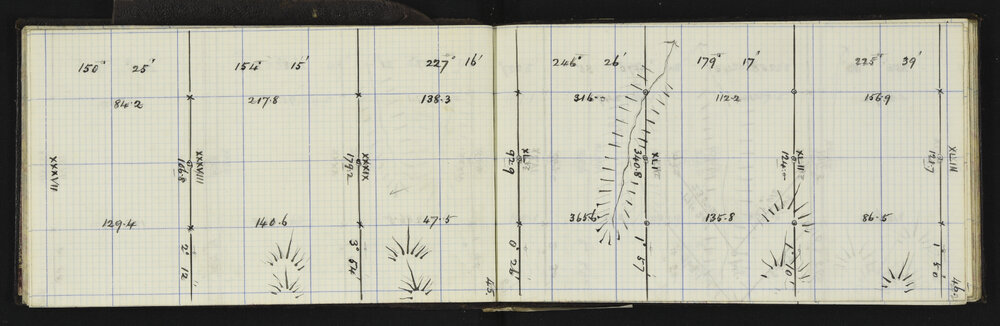 150° 25'
154° 15'
227° 16'
84.2
217.8
138.3
XXXVII
XXXVIII
106.8
XXXIX
179.2
129.4
140.6
47.5
2° 12'
3° 54'
45.
246° 26'
179° 17'
225° 39'
316.0
112.2
156.9
92.9
340.8
124.0
XLIII
121.7
365.6
135.8
86.5
0° 26'
1° 57'
1° 10'
1° 50'
46.